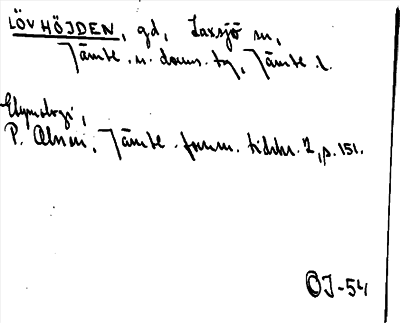 LÖVHÖJDEN, gd, Laxsjö sn,
Jämtl. n. doms. tg, Jämtl. l.
Etymologi,
P. Olsson, Jämtl. fornm. tidskr. 2, p. 151.
OJ-54